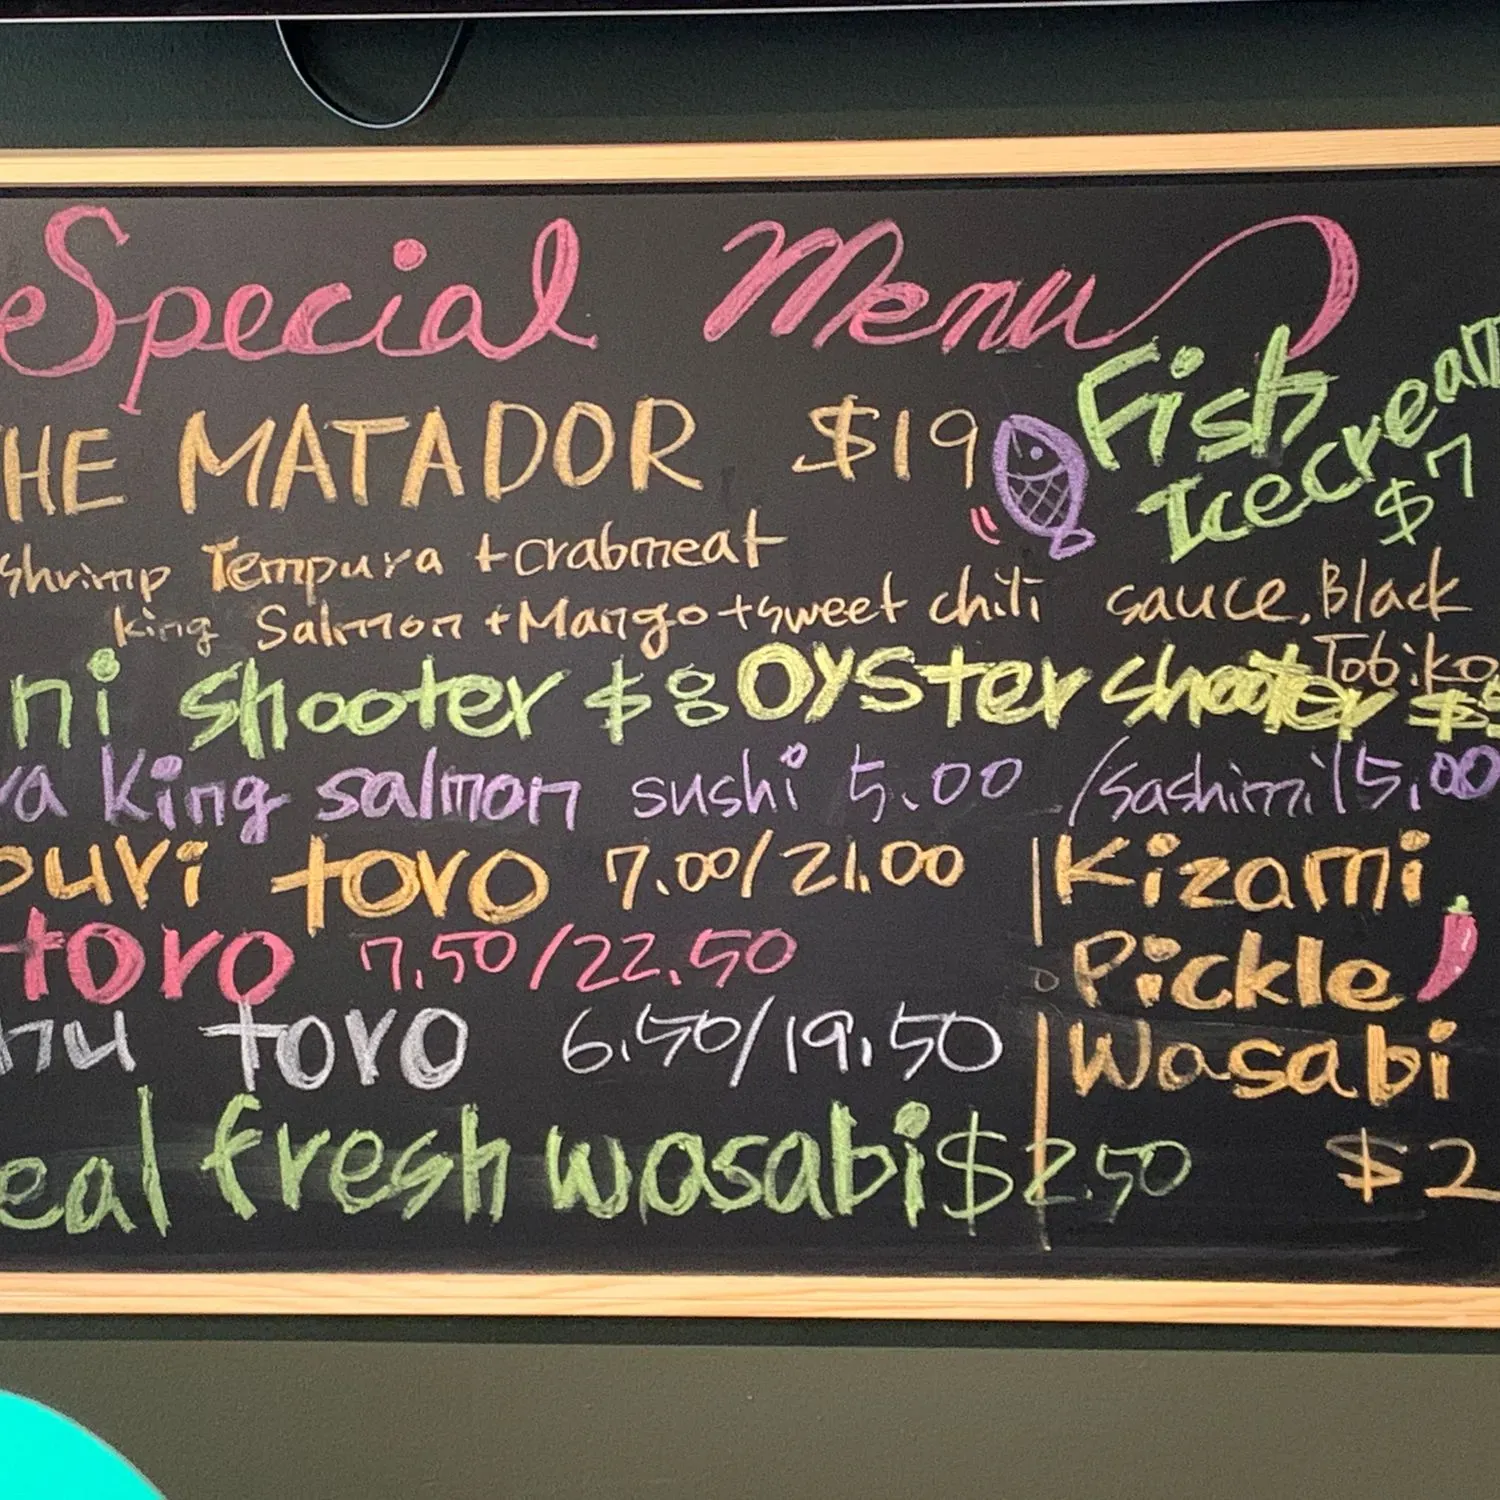 Special Menu
THE MATADOR $19
Fish
Icecream
$7
shrimp Tempura + crabmeat
king Salmon + Mango + sweet chili sauce, Black
Tobiko
ni shooter $8 Oyster shooter $5
va King salmon sushi 5.00 /sashimi 15.00
ouri toro 7.00/21.00
toro 7.50/22.50
hu toro 6.50/19.50
eal fresh wasabi $2.50
Kizami
Pickle
Wasabi
$2